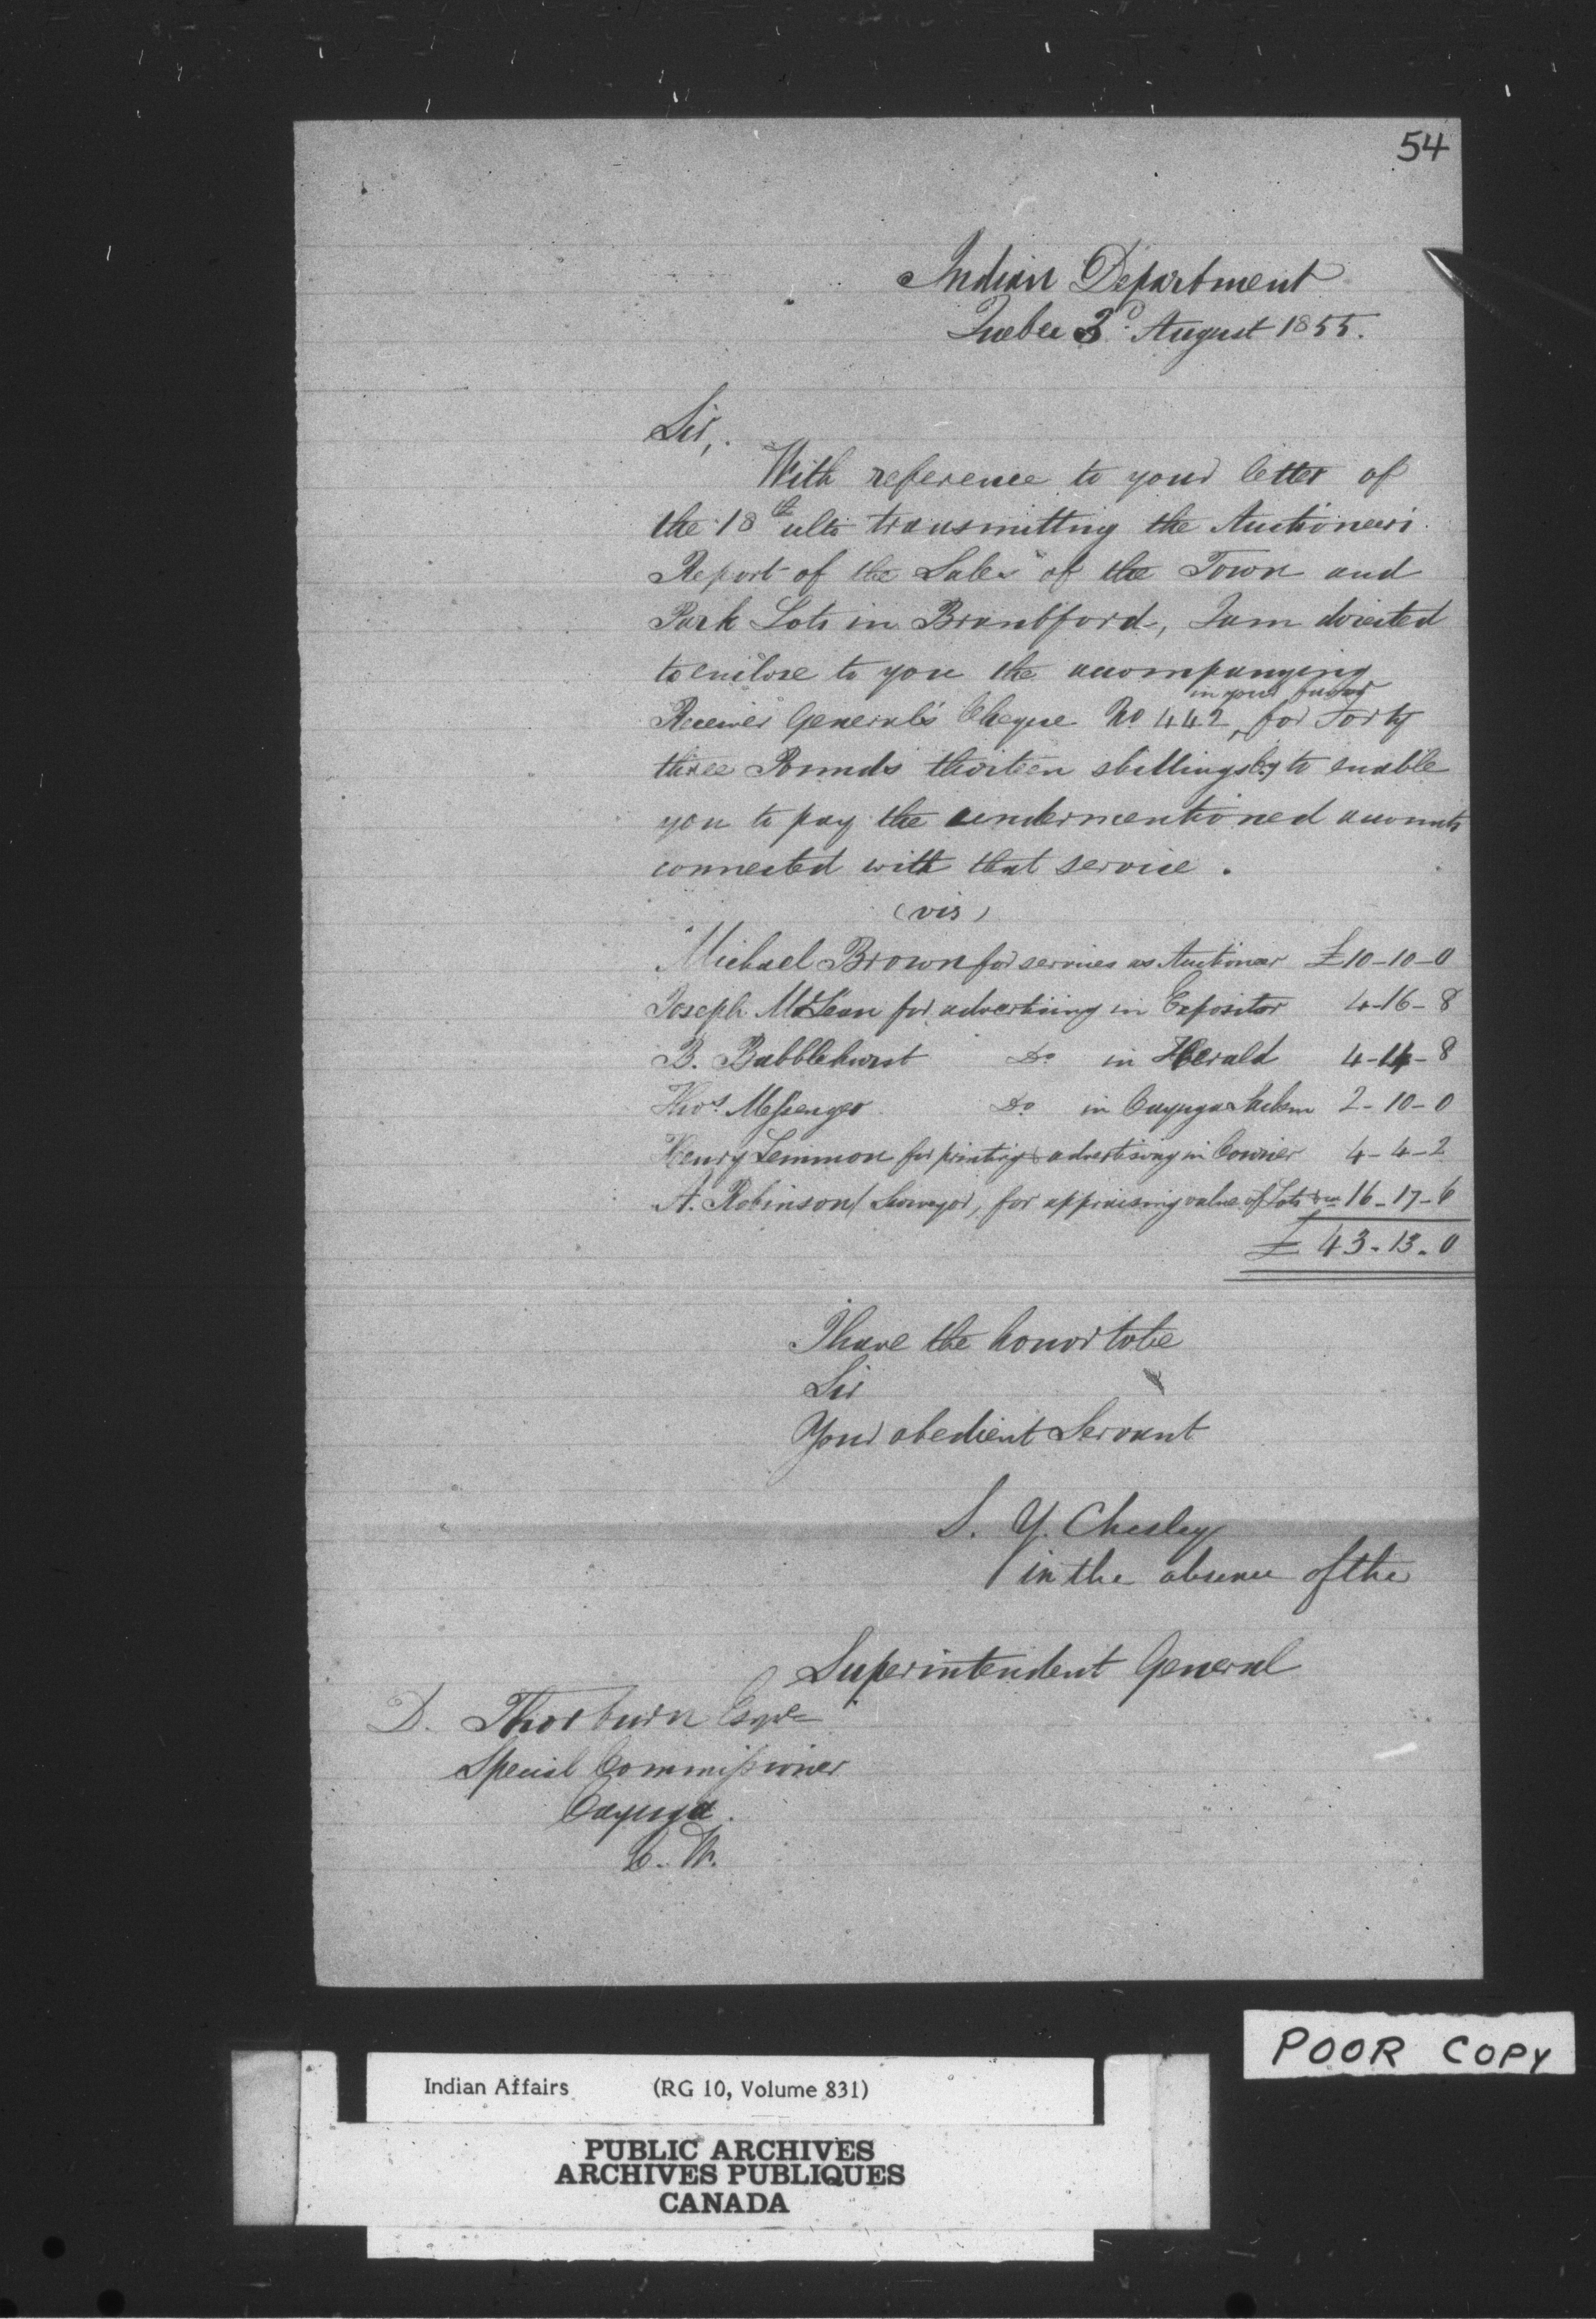 54
Indian Department
Quebec 3d. August 1855.
Sir,
With reference to your letter of
the 18th ulto transmitting the Auctioneers
Report of the Sales of the Town and
Park Lots in Brantford, I am directed
to enclose to you the accompanying
in your favor
Receiver General's Cheque No. 442, for Forty
three Pounds thirteen shillings Cy to enable
you to pay the undermentioned accounts
connected with that service.
(viz)
Michael Brown for services as Auctioneer £10-10-0
Joseph McLean for advertising in Expositor 4-16-8
B. Babblehurst Do. in Herald 4-14-8
Thos. Messenger Do in Cayuga Sachem 2-10-0
Henry Lemmon for printing & advertising in Courier 4-4-2
A. Robinson, Surveyor, for appraising value of Lots &c 16-17-6
£ 43-13-0
I have the honor to be
Sir
Your obedient Servant
S. Y. Chesley
in the absence of the
Superintendent General
D. Thorburn Esqre
Special Commissioner
Cayuga.
C. W.
POOR COPY
Indian Affairs (RG 10, Volume 831)
PUBLIC ARCHIVES
ARCHIVES PUBLIQUES
CANADA